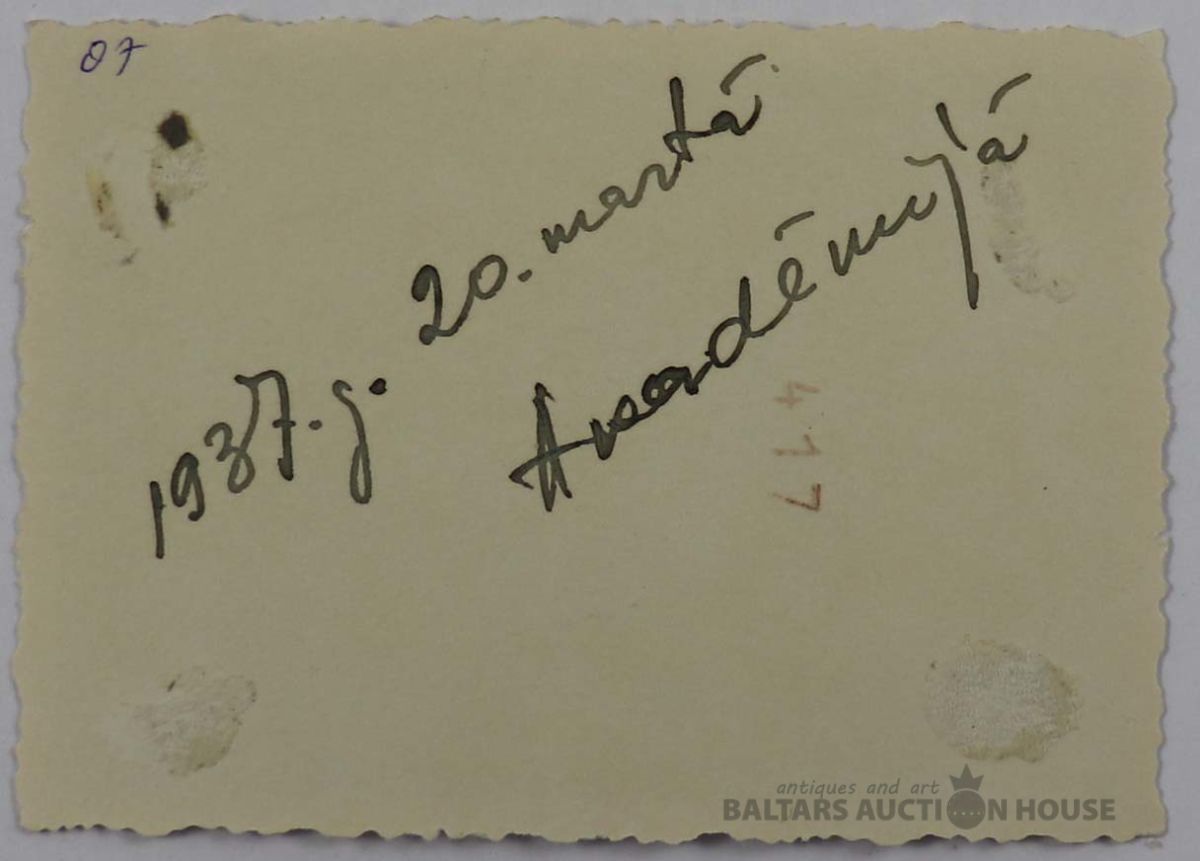 07
1937. g. 20. martā
Akadēmijā
417
antiques and art
BALTARS AUCTION HOUSE